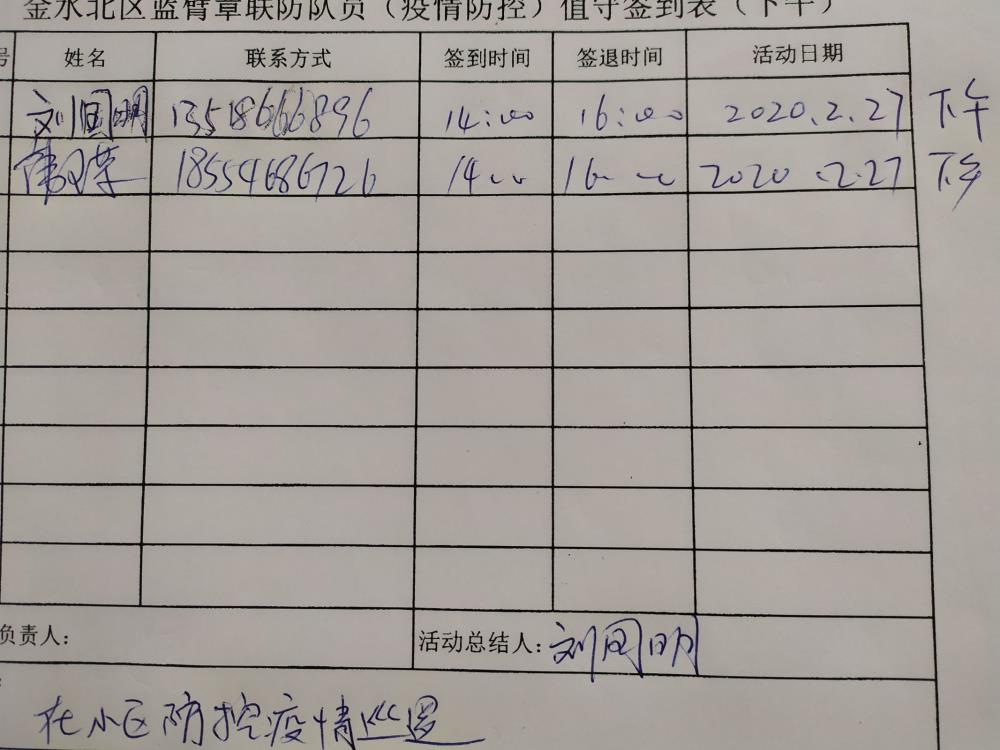 金水北区蓝臂章联防队员（疫情防控）值守签到表（下午）
号 姓名 联系方式 签到时间 签退时间 活动日期
刘国明 13518666896 14:00 16:00 2020.2.27 下午
18554686726 14 16 2020.2.27 下午
负责人：
活动总结人：刘国明
在小区防控疫情巡逻